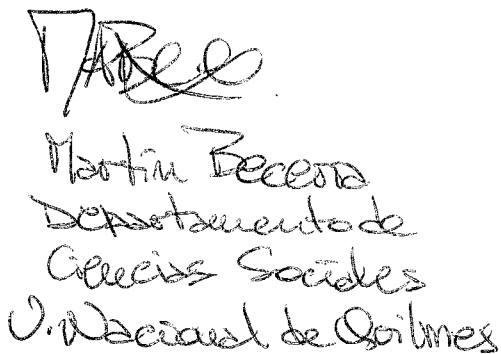 Martín Becerra
Departamento de
Ciencias Sociales
U. Nacional de Quilmes